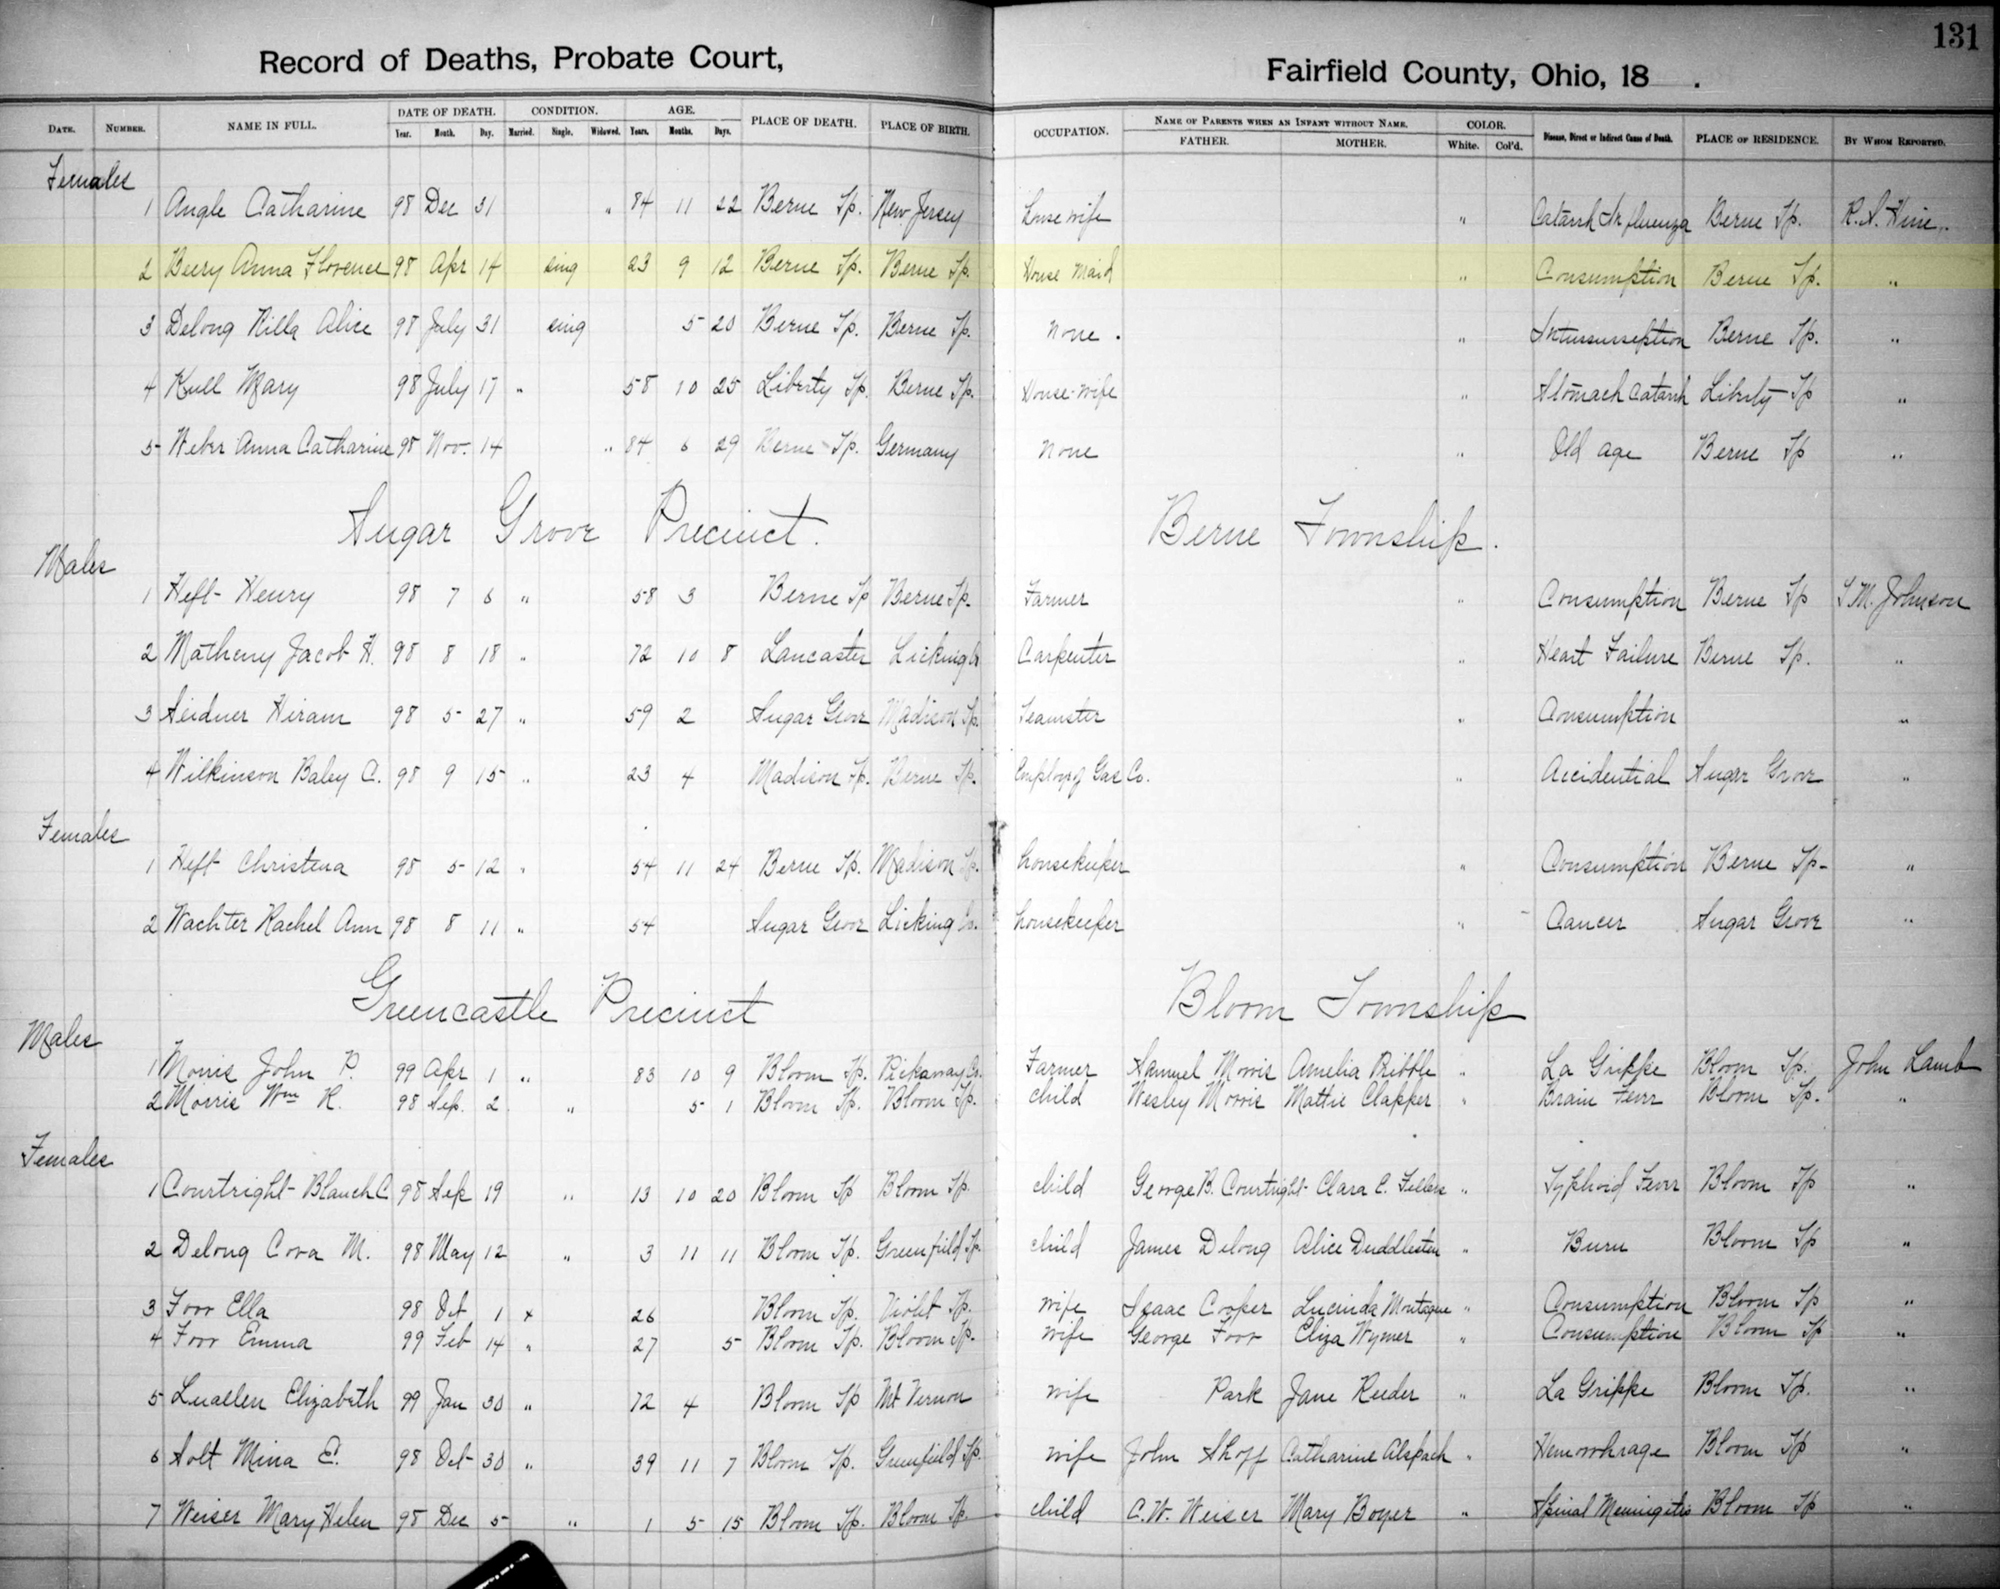 131
Record of Deaths, Probate Court, Fairfield County, Ohio, 18 .
DATE. NUMBER. NAME IN FULL. DATE OF DEATH. CONDITION. AGE. PLACE OF DEATH. PLACE OF BIRTH. OCCUPATION. NAME OF PARENTS WHEN AN INFANT WITHOUT NAME. COLOR. Disease, Direct or Indirect Cause of Death. PLACE OF RESIDENCE. BY WHOM REPORTED.
Year. Month. Day. Married. Single. Widowed. Years. Months. Days. FATHER. MOTHER. White. Col'd.
Females
1 Angle Catharine 98 Dec 31 " 84 11 22 Berne Tp. New Jersey Housewife " Catarrh Influenza Berne Tp. R.A. Hine.
2 Beery Anna Florence 98 Apr 14 sing 23 9 12 Berne Tp. Berne Tp. House Maid " Consumption Berne Tp. "
3 Delong Nilla Alice 98 July 31 sing 5 20 Berne Tp. Berne Tp. None . " Intussusseption Berne Tp. "
4 Kull Mary 98 July 17 " 58 10 25 Liberty Tp. Berne Tp. House-wife " Stomach Catarrh Liberty Tp "
5 Weber Anna Catharine 98 Nov. 14 " 84 6 29 Berne Tp. Germany None " Old age Berne Tp "
Sugar Grove Precinct. Berne Township.
Males
1 Heft Henry 98 7 6 " 58 3 Berne Tp Berne Tp. Farmer " Consumption Berne Tp S.M. Johnson
2 Matheny Jacob H. 98 8 18 " 72 10 8 Lancaster Licking Co Carpenter " Heart Failure Berne Tp. "
3 Seidner Hiram 98 5 27 " 59 2 Sugar Grove Madison Tp. Teamster " Consumption "
4 Wilkinson Baley C. 98 9 15 " 23 4 Madison Tp. Berne Tp. Employ of Gas Co. " Accidential Sugar Grove "
Females
1 Heft Christena 98 5 12 " 54 11 24 Berne Tp. Madison Tp. housekeeper " Consumption Berne Tp- "
2 Wachter Rachel Ann 98 8 11 " 54 Sugar Grove Licking Co. housekeeper " Cancer Sugar Grove "
Greencastle Precinct Bloom Township
Males
1 Morris John P. 99 Apr 1 " 83 10 9 Bloom Tp. Pickaway Co. Farmer Samuel Morris Amelia Dibble " La Grippe Bloom Tp. John Lamb
2 Morris Wm R. 98 Sep. 2 " 5 1 Bloom Tp. Bloom Tp. child Wesley Morris Mattie Clapper " Brain Fever Bloom Tp. "
Females
1 Courtright Blanch C 98 Sep 19 " 13 10 20 Bloom Tp Bloom Tp. child George B. Courtright Clara C. Fellers " Typhoid Fever Bloom Tp "
2 Delong Cora M. 98 May 12 " 3 11 11 Bloom Tp. Greenfield Tp. child James Delong Alice Duddlesten " Burn Bloom Tp "
3 Foor Ella 98 Oct 1 x 26 Bloom Tp. Violet Tp. wife Isaac Cooper Lucinda Montague " Consumption Bloom Tp "
4 Foor Emma 99 Feb 14 " 27 5 Bloom Tp. Bloom Tp. wife George Foor Eliza Wymer " Consumption Bloom Tp "
5 Luallen Elizabeth 99 Jan 30 " 72 4 Bloom Tp Mt Vernon wife Park Jane Reeder " La Grippe Bloom Tp. "
6 Solt Mina E. 98 Oct 30 " 39 11 7 Bloom Tp. Greenfield Tp. wife John Shoff Catharine Alspach " Hemorrhrage Bloom Tp "
7 Weiser Mary Helen 98 Dec 5 " 1 5 15 Bloom Tp. Bloom Tp. child C.W. Weiser Mary Boyer " Spinal Meningitis Bloom Tp "